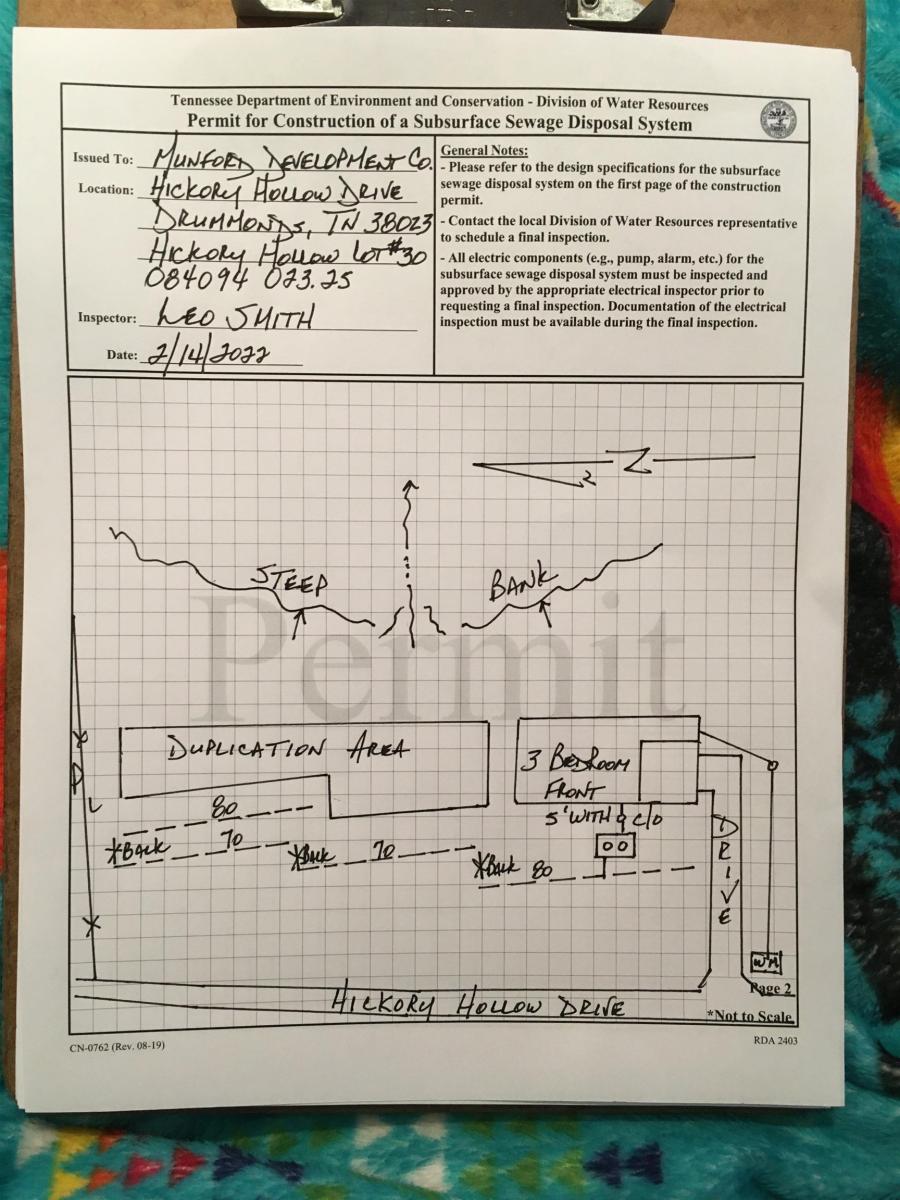 Tennessee Department of Environment and Conservation - Division of Water Resources
Permit for Construction of a Subsurface Sewage Disposal System
Issued To: MUNFORD DEVELOPMENT CO.
Location: HICKORY HOLLOW DRIVE
DRUMMONDS, TN 38023
HICKORY HOLLOW LOT #30
084094 023.25
Inspector: LEO SMITH
Date: 2/14/2022
General Notes:
- Please refer to the design specifications for the subsurface
sewage disposal system on the first page of the construction
permit.
- Contact the local Division of Water Resources representative
to schedule a final inspection.
- All electric components (e.g., pump, alarm, etc.) for the
subsurface sewage disposal system must be inspected and
approved by the appropriate electrical inspector prior to
requesting a final inspection. Documentation of the electrical
inspection must be available during the final inspection.
Z
STEEP
BANK
Permit
DUPLICATION AREA
3 BEDROOM
FRONT
5' WITH C/O
80
*BACK 70
*BACK 70
*BACK 80
DRIVE
WM
HICKORY HOLLOW DRIVE
Page 2
*Not to Scale
CN-0762 (Rev. 08-19)
RDA 2403